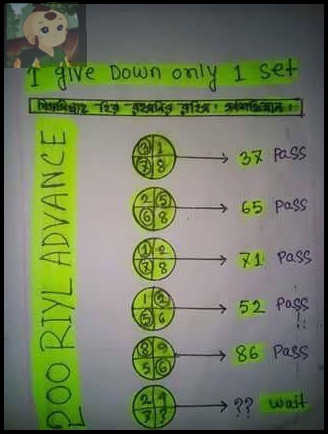 I give Down only 1 set
বিসমিল্লাহ হির রহমানির রহিম। সর্বশক্তিমান।
200 RIYL ADVANCE
3 1
7 8 → 37 Pass
2 5
6 8 → 65 Pass
1 2
7 8 → 71 Pass
1 2
5 6 → 52 Pass
8 9
5 6 → 86 Pass
2 9
? ? → ?? wait